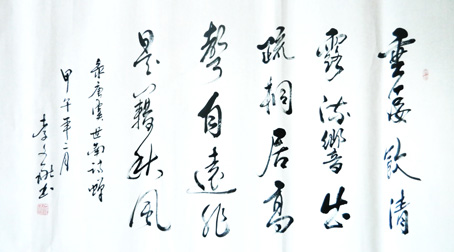 垂緌飲清
露流響出
疏桐居高
聲自遠非
是藉秋風
录唐虞世南詩蟬
甲午年二月
李文书